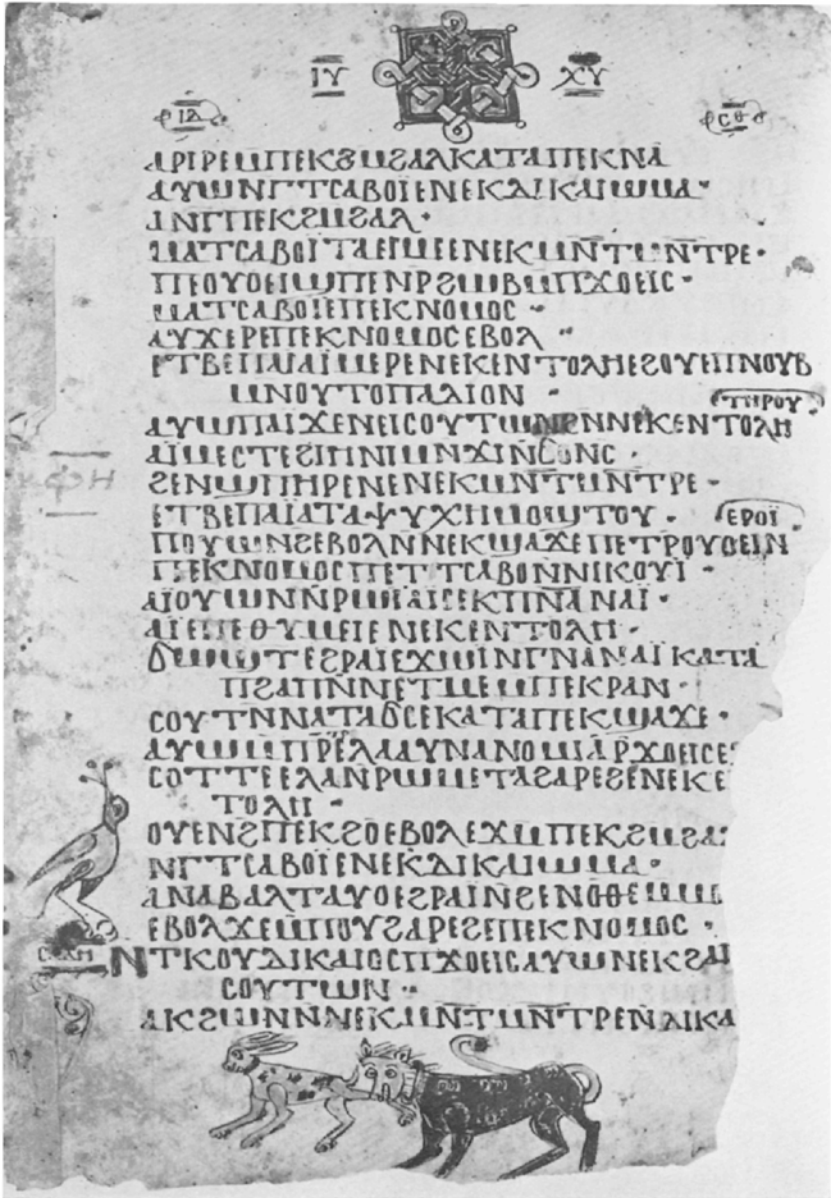 ⲒⲨ ⲬⲨ
ⲓⲇ ⲥⲑ
ⲀⲢⲓⲢⲈⲘⲠⲈⲔϨⲘϨⲀⲖⲔⲀⲦⲀⲠⲈⲔⲚⲀ
ⲀⲨⲰⲚⲄⲦⲤⲀⲂⲞⲒⲈⲚⲈⲔⲆⲒⲔⲀⲒⲰⲘⲀ·
ⲀⲚⲄⲠⲈⲔϨⲘϨⲀⲖ·
ⲘⲀⲦⲤⲀⲂⲞⲒⲦⲀⲈⲒⲘⲈⲈⲚⲈⲔⲘⲚⲦⲘⲚⲦⲢⲈ·
ⲠⲈⲞⲨⲞⲈⲒϢⲠⲈⲚⲢϨⲰⲂⲘⲠϪⲞⲈⲒⲤ·
ⲘⲀⲦⲤⲀⲂⲞⲒⲈⲠⲈⲔⲚⲞⲘⲞⲤ·
ⲀⲨϪⲈⲢⲈⲠⲈⲔⲚⲞⲘⲞⲤⲈⲂⲞⲖ
ⲈⲦⲂⲈⲠⲀⲒⲀⲒⲘⲈⲢⲈⲚⲈⲔⲈⲚⲦⲞⲖⲎⲈϨⲞⲨⲈⲠⲚⲞⲨⲂ
ⲘⲚⲞⲨⲦⲞⲠⲀⲆⲒⲞⲚ·
ⲦⲎⲢⲞⲨ
ⲀⲨⲰⲠⲀⲒϪⲈⲚⲈⲒⲤⲞⲨⲦⲰⲚⲈⲚⲚⲈⲔⲈⲚⲦⲞⲖⲎ
ⲀⲒⲘⲈⲤⲦⲈϨⲒⲎⲚⲒⲘⲚϪⲒⲚϬⲞⲚⲤ·
ϨⲈⲚϢⲠⲎⲢⲈⲚⲈⲚⲈⲔⲘⲚⲦⲘⲚⲦⲢⲈ·
ⲈⲦⲂⲈⲠⲀⲒⲀⲦⲀⲮⲨⲬⲎⲘⲞϢⲦⲞⲨ· ⲈⲢⲞⲒ
ⲠⲞⲨⲰⲚϨⲈⲂⲞⲖⲚⲚⲈⲔϢⲀϪⲈⲠⲈⲦⲢⲞⲨⲞⲈⲒⲚ
ⲠⲈⲔⲚⲞⲘⲞⲤⲠⲈⲦⲦⲤⲀⲂⲞⲚⲚⲒⲔⲞⲨⲒ·
ⲀⲒⲞⲨⲰⲚⲚⲢⲰⲒⲀⲒⲤⲈⲔⲠⲚⲀⲚⲀⲒ·
ⲀⲒⲈⲠⲈⲐⲨⲘⲈⲒⲈⲚⲈⲔⲈⲚⲦⲞⲖⲎ·
ϬⲰϢⲦⲈϨⲢⲀⲒⲈϪⲰⲒⲚⲄⲚⲀⲚⲀⲒⲔⲀⲦⲀ
ⲠϨⲀⲠⲚⲚⲈⲦⲘⲈⲘⲠⲈⲔⲢⲀⲚ·
ⲤⲞⲨⲦⲚⲚⲀⲦⲀϬⲤⲈⲔⲀⲦⲀⲠⲈⲔϢⲀϪⲈ·
ⲀⲨⲰⲘⲠⲢⲈⲖⲀⲀⲨⲚⲀⲚⲞⲘⲒⲀⲢϪⲞⲈⲒⲤⲈ
ⲤⲞⲦⲦⲈⲈⲖⲀⲚⲢⲰⲘⲈⲦⲀϨⲀⲢⲈϨⲈⲚⲈⲔⲈ
ⲦⲞⲖⲎ·
ⲞⲨⲈⲚϨⲠⲈⲔϨⲞⲈⲂⲞⲖⲈϪⲘⲠⲈⲔϨⲘϨⲀ
ⲚⲄⲦⲤⲀⲂⲞⲒⲈⲚⲈⲔⲆⲒⲔⲀⲒⲰⲘⲀ·
ⲀⲚⲀⲂⲀⲖⲦⲀⲨⲞⲈϨⲢⲀⲒⲚϨⲈⲚⲞⲐⲈⲘⲘⲞ
ⲈⲂⲞⲖϪⲈⲘⲠⲞⲨϨⲀⲢⲈϨⲈⲠⲈⲔⲚⲞⲘⲞⲤ·
ⲚⲦⲔⲞⲨⲆⲒⲔⲀⲒⲞⲤⲠϪⲞⲈⲒⲤⲀⲨⲰⲚⲈⲔϨⲀⲠ
ⲤⲞⲨⲦⲰⲚ·
ⲀⲔϨⲰⲚⲚⲚⲈⲔⲘⲚⲦⲘⲚⲦⲢⲈⲚⲆⲒⲔⲀ